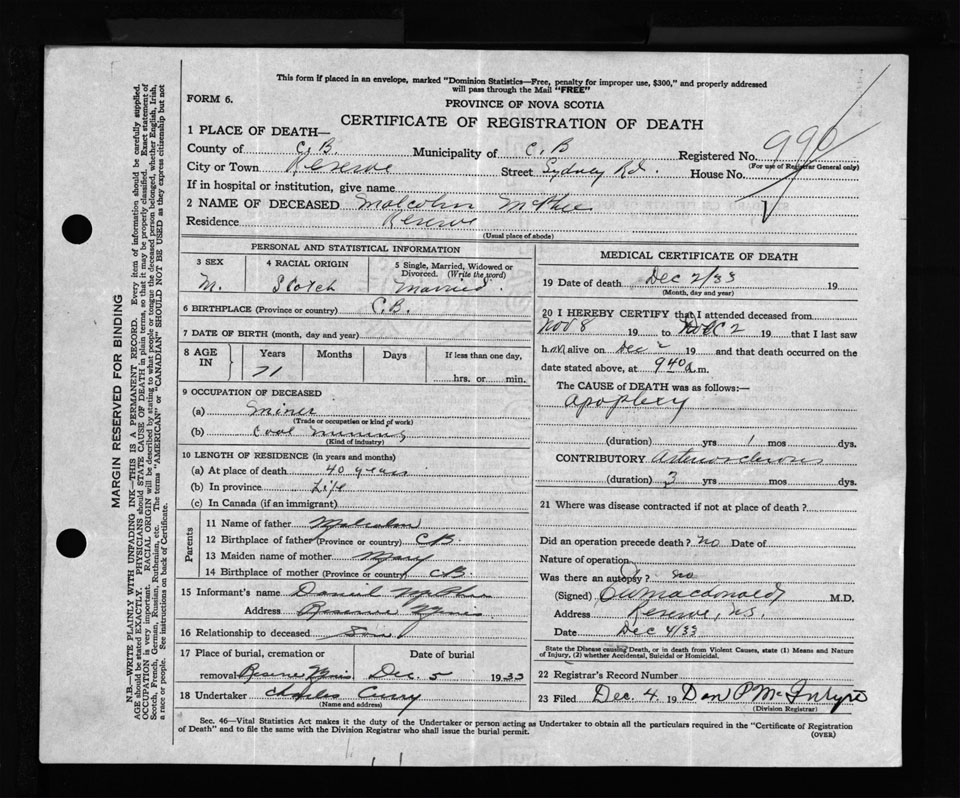 This form if placed in an envelope, marked "Dominion Statistics—Free, penalty for improper use, $300," and properly addressed
will pass through the Mail "FREE"
FORM 6.
PROVINCE OF NOVA SCOTIA
CERTIFICATE OF REGISTRATION OF DEATH
1 PLACE OF DEATH—
County of C.B. Municipality of C.B Registered No. 990
(For use of Registrar General only)
City or Town Reserve Street Sydney Rd. House No.
If in hospital or institution, give name
2 NAME OF DECEASED Malcolm McPhee
Residence Reserve
(Usual place of abode)
MARGIN RESERVED FOR BINDING
N.B.—WRITE PLAINLY WITH UNFADING INK—THIS IS A PERMANENT RECORD. Every item of information should be carefully supplied.
AGE should be stated EXACTLY. PHYSICIANS should STATE CAUSE OF DEATH in plain terms, so that it may be properly classified. Exact statement of
OCCUPATION is very important. RACIAL ORIGIN will be described by stating to what people or tongue the deceased person belonged, whether English, Irish,
Scotch, French, German, Russian, Ruthenian, etc. The terms "AMERICAN" or "CANADIAN" SHOULD NOT BE USED as they express citizenship but not
a race or people. See instructions on back of Certificate.
PERSONAL AND STATISTICAL INFORMATION
3 SEX
M.
4 RACIAL ORIGIN
Scotch
5 Single, Married, Widowed or
Divorced. (Write the word)
Married.
6 BIRTHPLACE (Province or country) C.B.
7 DATE OF BIRTH (month, day and year)
8 AGE IN
Years Months Days If less than one day,
71
hrs. or min.
9 OCCUPATION OF DECEASED
(a) Miner
(Trade or occupation or kind of work)
(b) Coal Mining
(Kind of industry)
10 LENGTH OF RESIDENCE (in years and months)
(a) At place of death 40 years
(b) In province Life
(c) In Canada (if an immigrant)
Parents
11 Name of father Malcolm
12 Birthplace of father (Province or country) C.B.
13 Maiden name of mother Mary
14 Birthplace of mother (Province or country) C.B.
15 Informant's name Daniel McPhee
Address Reserve Mines
16 Relationship to deceased Son
17 Place of burial, cremation or
removal Reserve Mines
Date of burial
Dec. 5 1933
18 Undertaker Charles Curry
(Name and address)
MEDICAL CERTIFICATE OF DEATH
19 Date of death Dec 2/33 19
(Month, day and year)
20 I HEREBY CERTIFY that I attended deceased from
Nov 8 19 to Dec 2 19 that I last saw
h m alive on Dec 2 19 and that death occurred on
date stated above, at 9 40 a.m.
The CAUSE OF DEATH was as follows:—
Apoplexy
(duration) yrs 1 mos dys.
CONTRIBUTORY Arteriosclerosis
(duration) 3 yrs mos dys.
21 Where was disease contracted if not at place of death?
Did an operation precede death? no Date of
Nature of operation
Was there an autopsy? no
(Signed) Macdonald M.D.
Address Reserve, N.S.
Date Dec 4/33
State the Disease causing Death, or in death from Violent Causes, state (1) Means and Nature
of Injury, (2) whether Accidental, Suicidal or Homicidal.
22 Registrar's Record Number
23 Filed Dec. 4. 19 Dan P McIntyre
(Division Registrar)
Sec. 46—Vital Statistics Act makes it the duty of the Undertaker or person acting as Undertaker to obtain all the particulars required in the "Certificate of Registration
of Death" and to file the same with the Division Registrar who shall issue the burial permit.
(OVER)